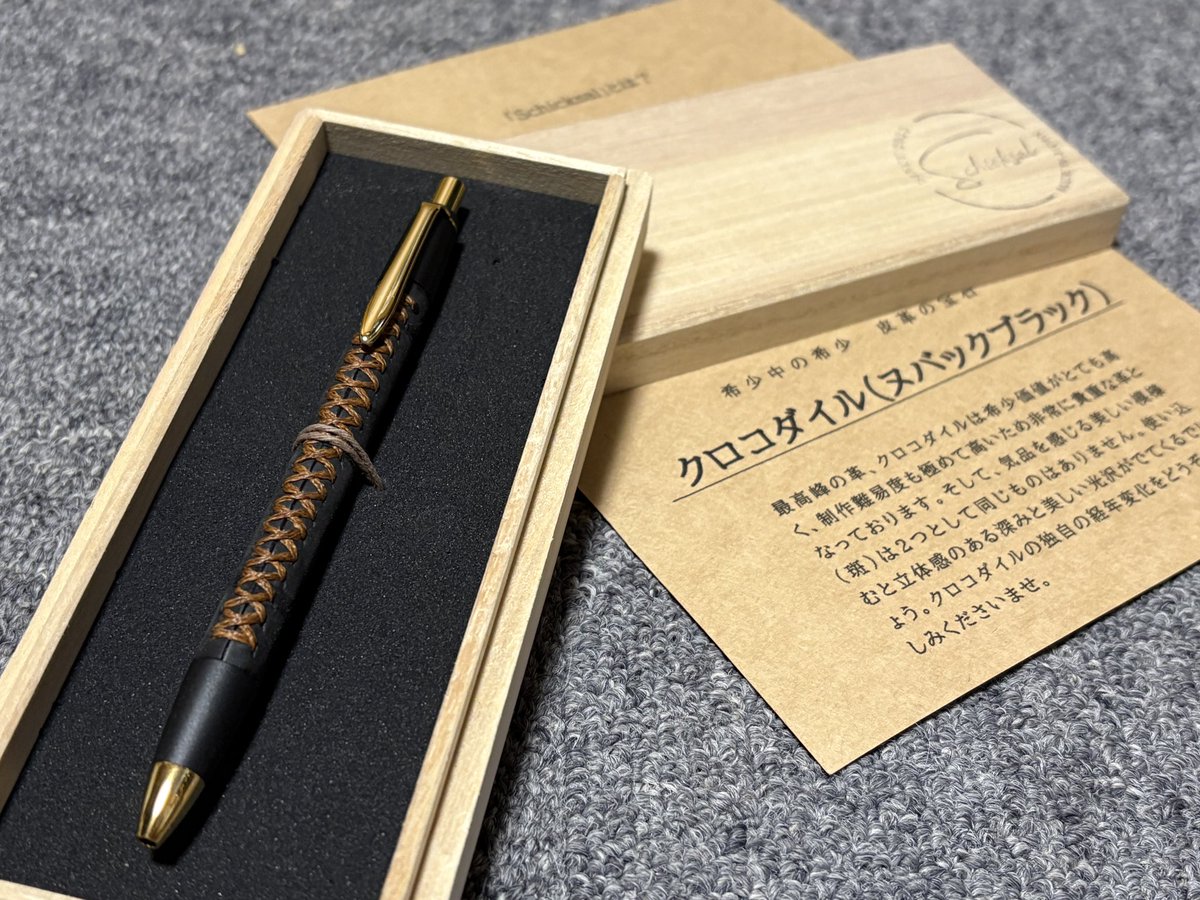 「Schicksal」とは？
Schicksal
希少中の希少 皮革の宝石
クロコダイル(ヌバックブラック)
最高峰の革、クロコダイルは希少価値がとても高
く、制作難易度も極めて高いため非常に貴重な革と
なっております。そして、気品を感じる美しい模様
(斑)は2つとして同じものはありません。使い込
むと立体感のある深みと美しい光沢がでてくるで
ょう。クロコダイルの独自の経年変化をどうぞ
しみくださいませ。